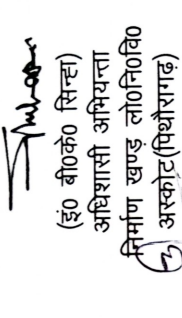 (इं० बी०के० सिन्हा)
अधिशासी अभियन्ता
निर्माण खण्ड लो०नि०वि०
अस्कोट(पिथौरागढ़)